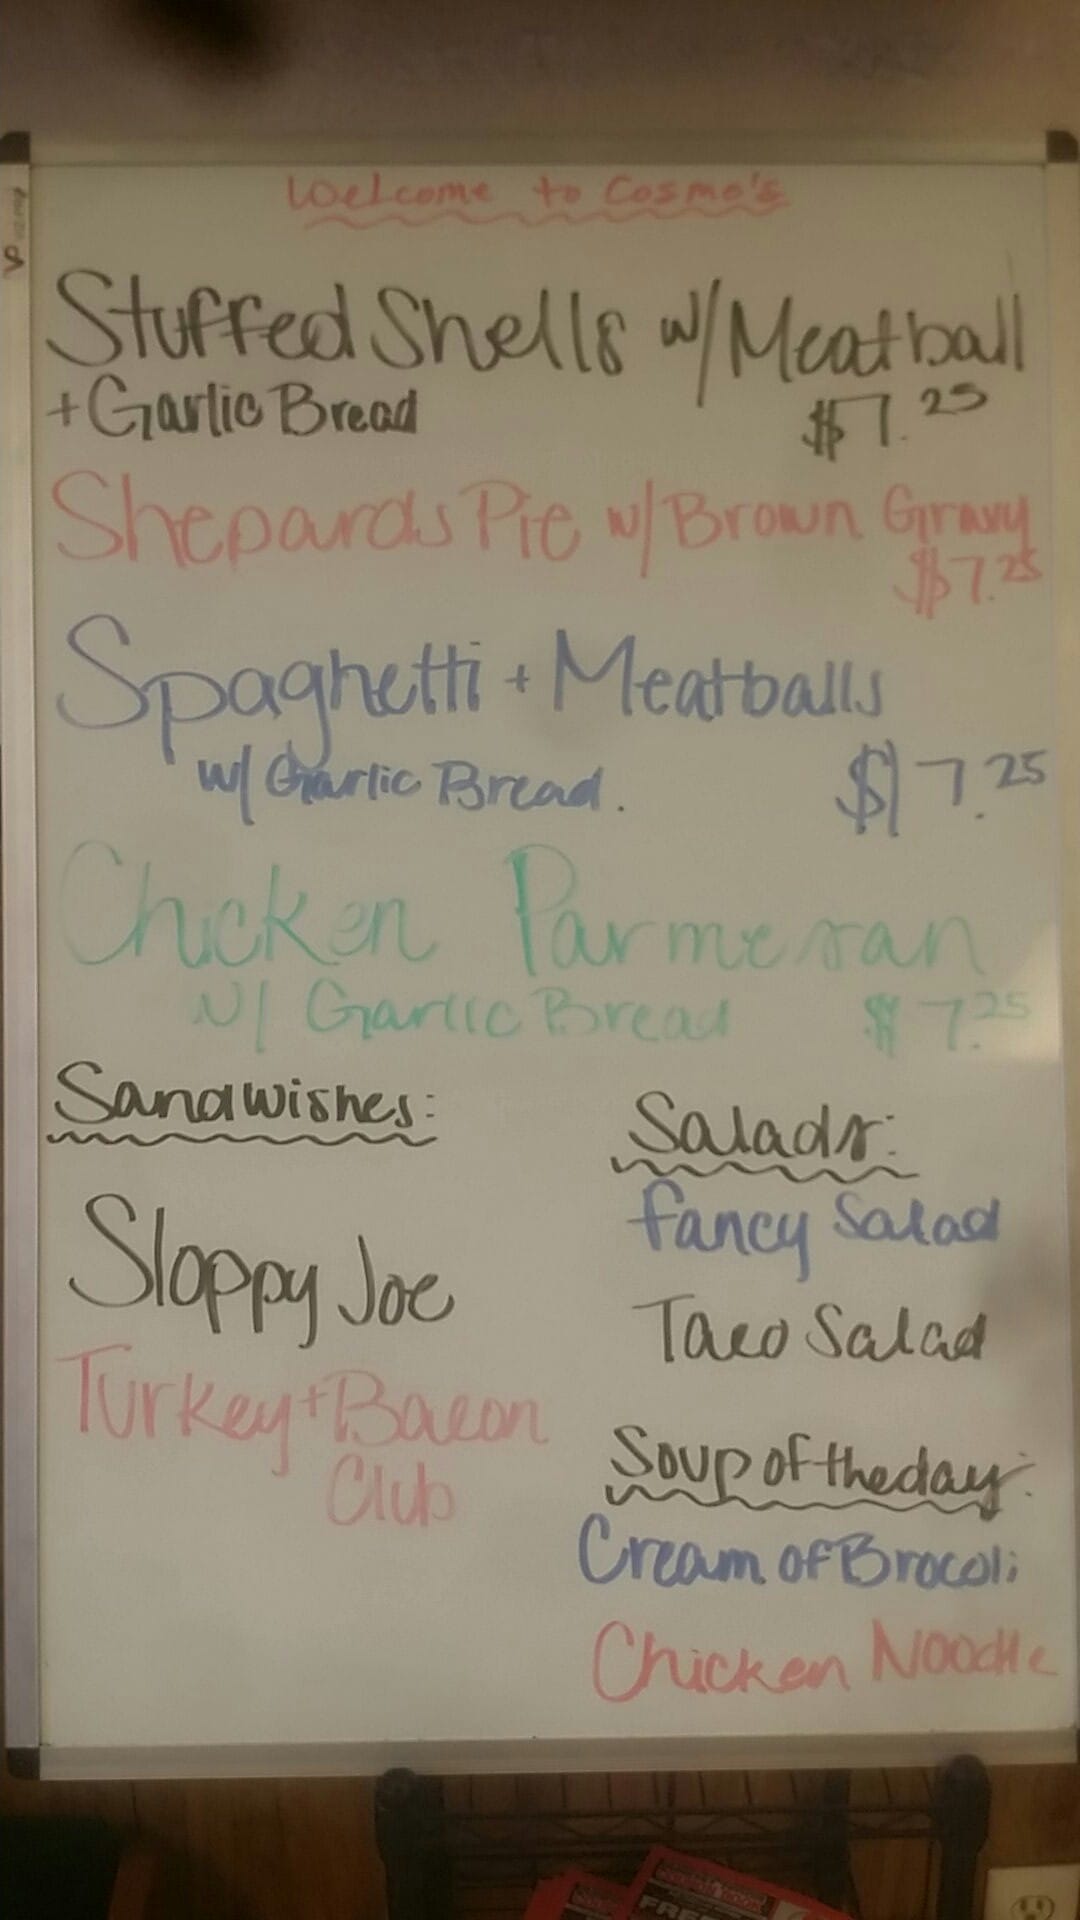 Welcome to Cosmo's
Stuffed Shells w/ Meatball
+ Garlic Bread $7.25
Shepards Pie w/ Brown Gravy
$7.25
Spaghetti + Meatballs
w/ Garlic Bread. $7.25
Chicken Parmesan
w/ Garlic Bread $7.25
Sandwishes:
Sloppy Joe
Turkey + Bacon
Club
Salads:
Fancy Salad
Taco Salad
Soup of the day:
Cream of Brocoli
Chicken Noodle
FREE